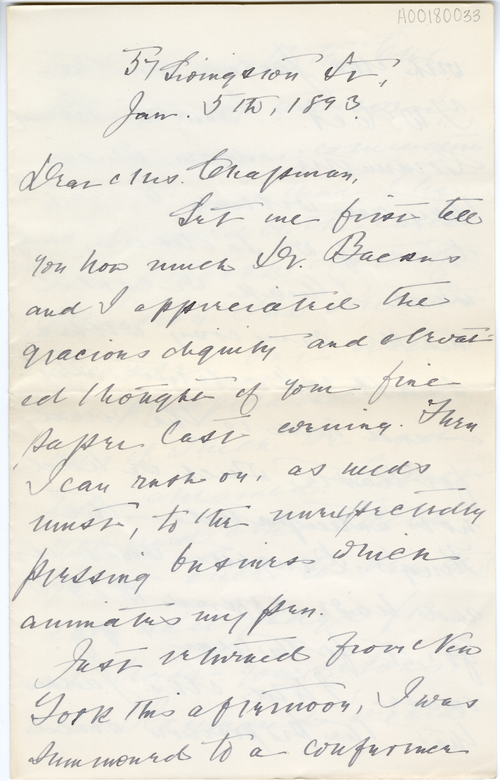 A00180033
57 Livingston St.,
Jan. 5th, 1893.
Dear Mrs. Chapman,
Let me first tell
you how much Dr. Backus
and I appreciated the
gracious dignity and elevat-
ed thought of your fine
paper last evening. Then
I can rush on, as needs
must, to the unexpectedly
pressing business which
animates my pen.
Just returned from New
York this afternoon, I was
summoned to a conference